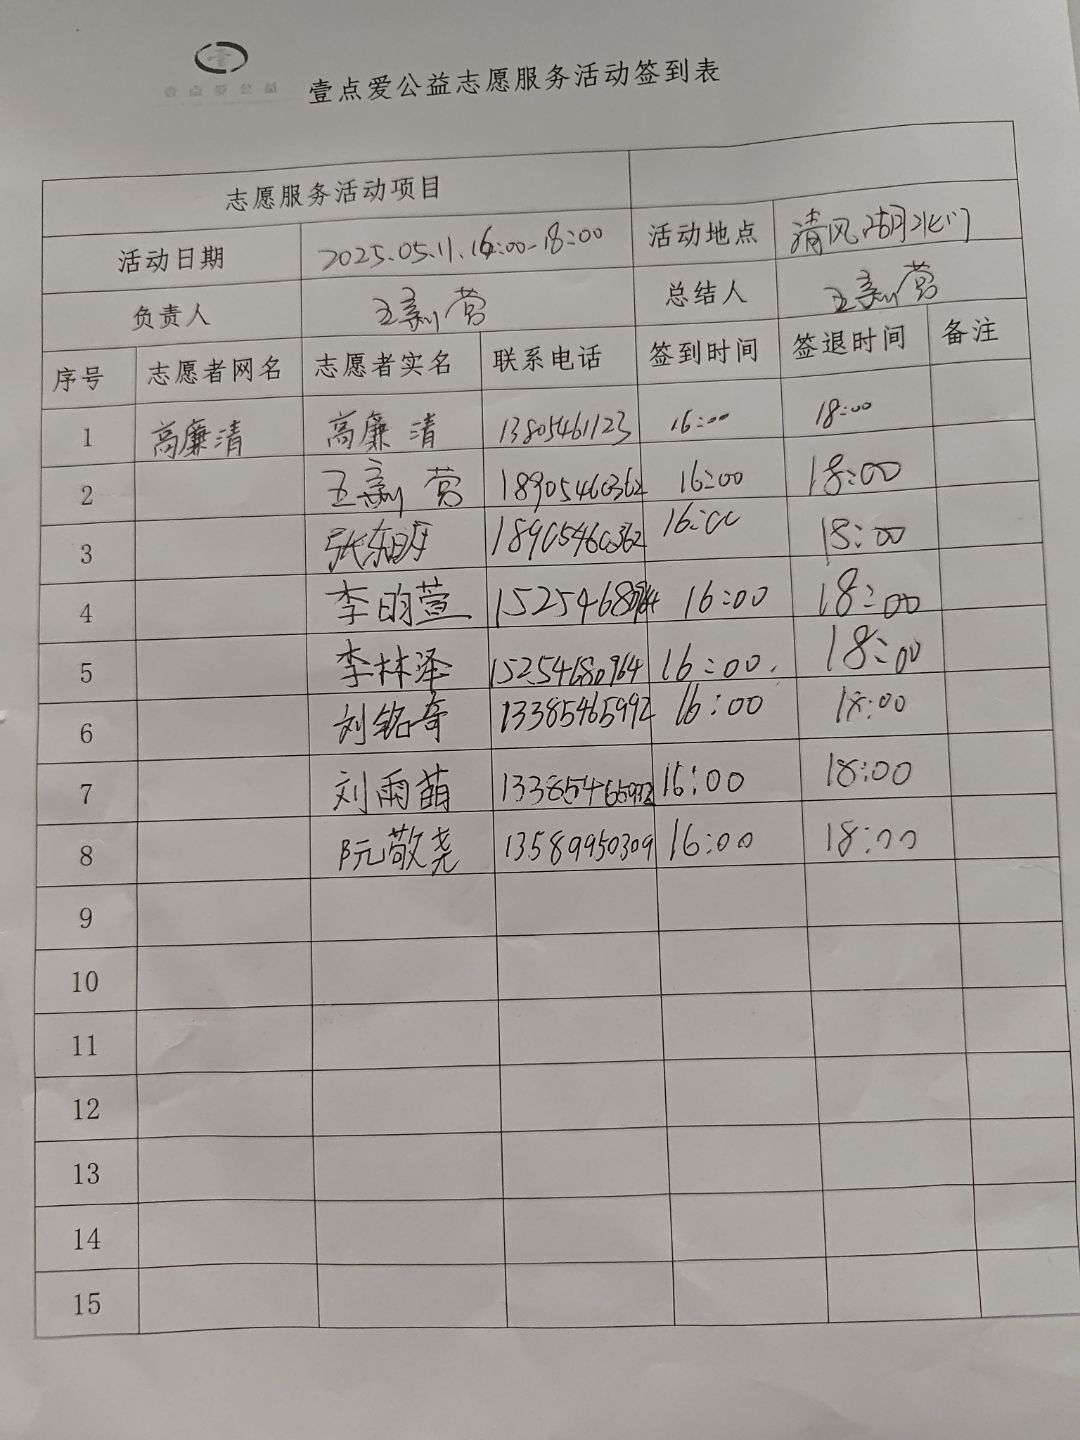 壹点爱公益
壹点爱公益志愿服务活动签到表
志愿服务活动项目
活动日期 2025.05.11.16:00-18:00 活动地点 清风湖北门
负责人 王新营 总结人 王新营
序号 志愿者网名 志愿者实名 联系电话 签到时间 签退时间 备注
1 高廉清 高廉清 13805461123 16:00 18:00
2 王新营 18905460362 16:00 18:00
3 18905460362 16:00 18:00
4 李昀萱 16:00 18:00
5 李林泽 15254680964 16:00. 18:00
6 刘铭奇 13385465992 16:00 18:00
7 刘雨萌 16:00 18:00
8 阮敬尧 13589950309 16:00 18:00
9
10
11
12
13
14
15